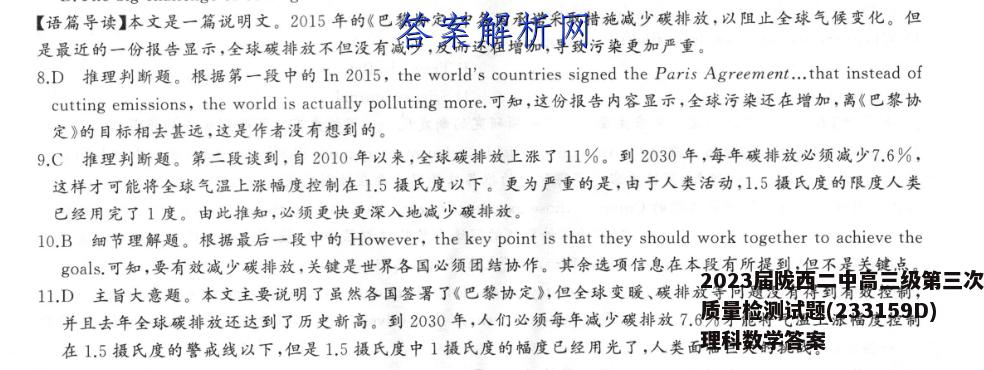 【语篇导读】本文是一篇说明文。2015年的《巴黎协定》中各国承诺采取措施减少碳排放,以阻止全球气候变化。但
是最近的一份报告显示,全球碳排放不但没有减少,反而还在增加,导致污染更加严重。
答案解析网
8.D 推理判断题。根据第一段中的 In 2015, the world's countries signed the Paris Agreement...that instead of
cutting emissions, the world is actually polluting more.可知,这份报告内容显示,全球污染还在增加,离《巴黎协
定》的目标相去甚远,这是作者没有想到的。
9.C 推理判断题。第二段谈到,自2010年以来,全球碳排放上涨了11%。到2030年,每年碳排放必须减少7.6%,
这样才可能将全球气温上涨幅度控制在1.5摄氏度以下。更为严重的是,由于人类活动,1.5摄氏度的限度人类
已经用完了1度。由此推知,必须更快更深入地减少碳排放。
10.B 细节理解题。根据最后一段中的 However, the key point is that they should work together to achieve the
goals.可知,要有效减少碳排放,关键是世界各国必须团结协作。其余选项信息在本段有所提到,但不是关键点。
11.D 主旨大意题。本文主要说明了虽然各国签署了《巴黎协定》,但全球变暖、碳排放等问题没有得到有效控制,
并且去年全球碳排放还达到了历史新高。到2030年,人们必须每年减少碳排放7.6%才能将气温上涨幅度控制
在1.5摄氏度的警戒线以下,但是1.5摄氏度中1摄氏度的幅度已经用光了,人类面临巨大的挑战。
2023届陇西二中高三级第三次
质量检测试题(233159D)
理科数学答案